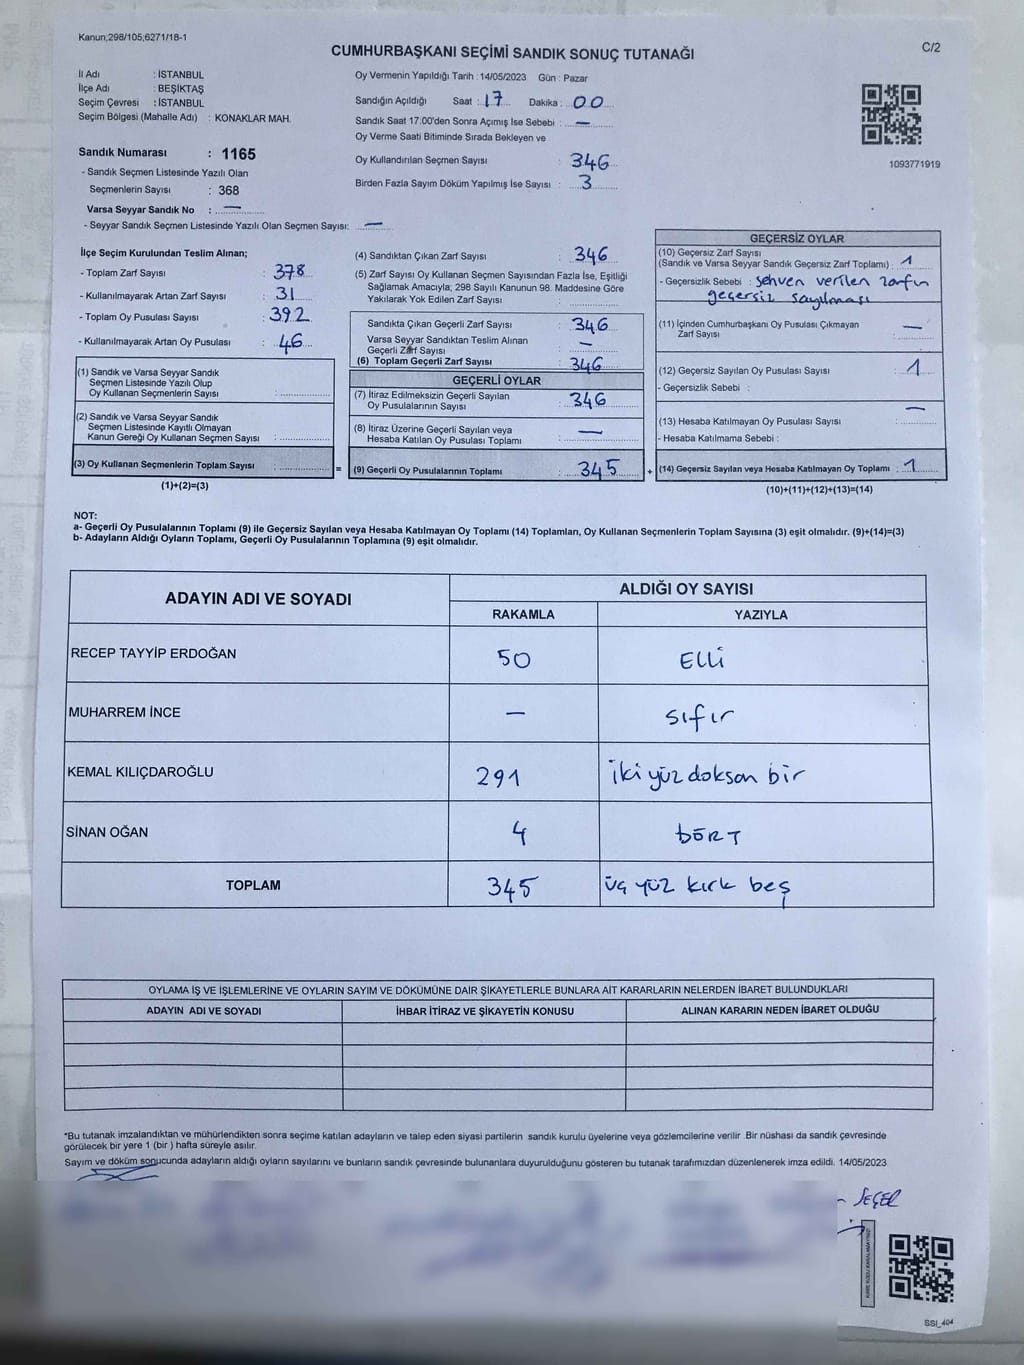 Kanun;298/105;6271/18-1
CUMHURBAŞKANI SEÇİMİ SANDIK SONUÇ TUTANAĞI
C/2
İl Adı : İSTANBUL
İlçe Adı : BEŞİKTAŞ
Seçim Çevresi : İSTANBUL
Seçim Bölgesi (Mahalle Adı) : KONAKLAR MAH.
Sandık Numarası : 1165
- Sandık Seçmen Listesinde Yazılı Olan
Seçmenlerin Sayısı : 368
Varsa Seyyar Sandık No : —
- Seyyar Sandık Seçmen Listesinde Yazılı Olan Seçmen Sayısı: —
Oy Vermenin Yapıldığı Tarih : 14/05/2023 Gün : Pazar
Sandığın Açıldığı Saat : 17 Dakika : 00
Sandık Saat 17.00'den Sonra Açımış İse Sebebi : —
Oy Verme Saati Bitiminde Sırada Bekleyen ve
Oy Kullandırılan Seçmen Sayısı : 346
Birden Fazla Sayım Döküm Yapılmış İse Sayısı : 3
1093771919
İlçe Seçim Kurulundan Teslim Alınan;
- Toplam Zarf Sayısı : 378
- Kullanılmayarak Artan Zarf Sayısı : 31
- Toplam Oy Pusulası Sayısı : 392
- Kullanılmayarak Artan Oy Pusulası : 46
(1) Sandık ve Varsa Seyyar Sandık
Seçmen Listesinde Yazılı Olup
Oy Kullanan Seçmenlerin Sayısı :
(2) Sandık ve Varsa Seyyar Sandık
Seçmen Listesinde Kayıtlı Olmayan
Kanun Gereği Oy Kullanan Seçmen Sayısı :
(3) Oy Kullanan Seçmenlerin Toplam Sayısı :
(1)+(2)=(3)
(4) Sandıktan Çıkan Zarf Sayısı : 346
(5) Zarf Sayısı Oy Kullanan Seçmen Sayısından Fazla İse, Eşitliği
Sağlamak Amacıyla; 298 Sayılı Kanunun 98. Maddesine Göre
Yakılarak Yok Edilen Zarf Sayısı :
Sandıkta Çıkan Geçerli Zarf Sayısı : 346
Varsa Seyyar Sandıktan Teslim Alınan
Geçerli Zarf Sayısı : —
(6) Toplam Geçerli Zarf Sayısı : 346
GEÇERLİ OYLAR
(7) İtiraz Edilmeksizin Geçerli Sayılan
Oy Pusulalarının Sayısı : 346
(8) İtiraz Üzerine Geçerli Sayılan veya
Hesaba Katılan Oy Pusulası Toplamı : —
= (9) Geçerli Oy Pusulalarının Toplamı : 345
GEÇERSİZ OYLAR
(10) Geçersiz Zarf Sayısı
(Sandık ve Varsa Seyyar Sandık Geçersiz Zarf Toplamı) : 1
- Geçersizlik Sebebi : sehven verilen zarfın
geçersiz sayılması
(11) İçinden Cumhurbaşkanı Oy Pusulası Çıkmayan
Zarf Sayısı : —
(12) Geçersiz Sayılan Oy Pusulası Sayısı : 1
- Geçersizlik Sebebi :
(13) Hesaba Katılmayan Oy Pusulası Sayısı : —
- Hesaba Katılmama Sebebi :
+ (14) Geçersiz Sayılan veya Hesaba Katılmayan Oy Toplamı : 1
(10)+(11)+(12)+(13)=(14)
NOT:
a- Geçerli Oy Pusulalarının Toplamı (9) ile Geçersiz Sayılan veya Hesaba Katılmayan Oy Toplamı (14) Toplamları, Oy Kullanan Seçmenlerin Toplam Sayısına (3) eşit olmalıdır. (9)+(14)=(3)
b- Adayların Aldığı Oyların Toplamı, Geçerli Oy Pusulalarının Toplamına (9) eşit olmalıdır.
ADAYIN ADI VE SOYADI
ALDIĞI OY SAYISI
RAKAMLA YAZIYLA
RECEP TAYYİP ERDOĞAN 50 Elli
MUHARREM İNCE — sıfır
KEMAL KILIÇDAROĞLU 291 iki yüz doksan bir
SİNAN OĞAN 4 DÖRT
TOPLAM 345 üç yüz kırk beş
OYLAMA İŞ VE İŞLEMLERİNE VE OYLARIN SAYIM VE DÖKÜMÜNE DAİR ŞİKAYETLERLE BUNLARA AİT KARARLARIN NELERDEN İBARET BULUNDUKLARI
ADAYIN ADI VE SOYADI İHBAR İTİRAZ VE ŞİKAYETİN KONUSU ALINAN KARARIN NEDEN İBARET OLDUĞU
*Bu tutanak imzalandıktan ve mühürlendikten sonra seçime katılan adayların ve talep eden siyasi partilerin sandık kurulu üyelerine veya gözlemcilerine verilir .Bir nüshası da sandık çevresinde
görülecek bir yere 1 (bir ) hafta süreyle asılır.
Sayım ve döküm sonucunda adayların aldığı oyların sayılarını ve bunların sandık çevresinde bulunanlara duyurulduğunu gösteren bu tutanak tarafımızdan düzenlenerek imza edildi. 14/05/2023
SEÇEL
SSI_404